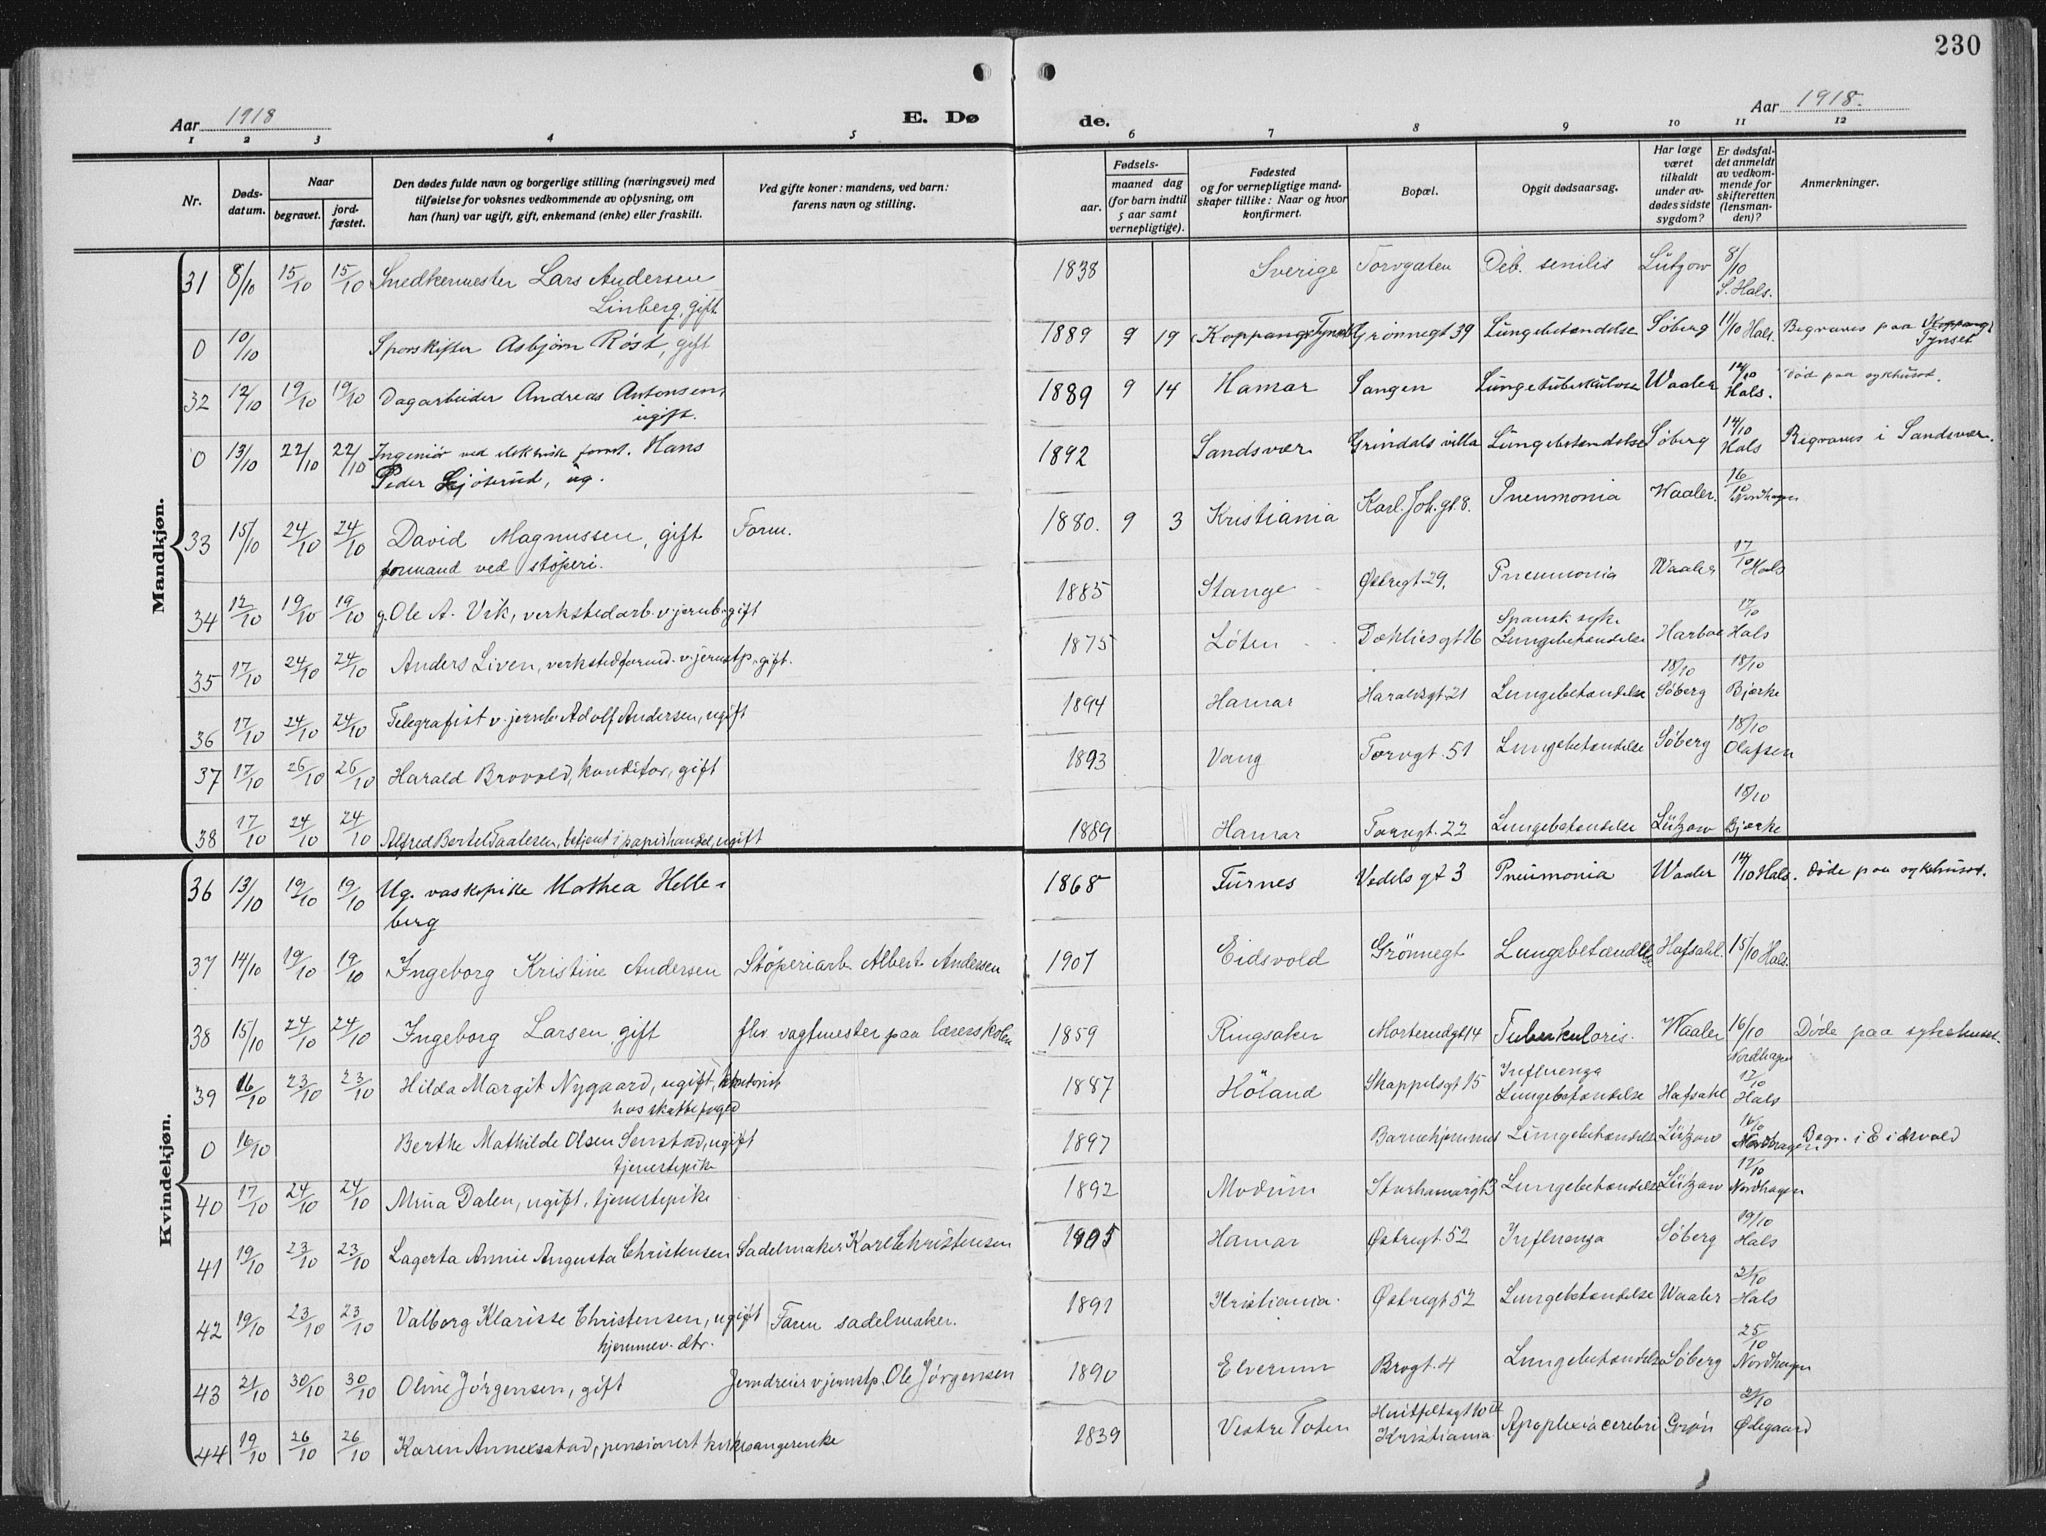 230
Aar 1918
E. Dø
de.
Aar 1918.
1 2 3 4 5 6 7 8 9 10 11 12
Nr.
Døds-
datum.
Naar
begravet.
jord-
fæstet.
Den dødes fulde navn og borgerlige stilling (næringsvei) med
tilføielse for voksnes vedkommende av oplysning, om
han (hun) var ugift, gift, enkemand (enke) eller fraskilt.
Ved gifte koner: mandens, ved barn:
farens navn og stilling.
Fødsels-
aar.
maaned dag
(for barn indtil
5 aar samt
vernepligtige).
Fødested
og for vernepligtige mand-
skaper tillike: Naar og hvor
konfirmert.
Bopæl.
Opgit dødsaarsag.
Har læge
været
tilkaldt
under av-
dødes sidste
sygdom?
Er dødsfal-
det anmeldt
av vedkom-
mende for
skifteretten
(lensman-
den)?
Anmerkninger.
Mandkjøn.
31 8/10 15/10 15/10 Snedkermester Lars Andersen
Linberg, gift 1838 Sverige Torvgaten Deb. senilis Lützow 8/10
S. Hals.
0 10/10 Sporskifter Asbjørn Røst, gift 1889 9 19 (Koppang) Tynset Grønnegt 39 Lungebetændelse Søberg 11/10 Hals. Begraves paa Koppang
Tynset
32 12/10 19/10 19/10 Dagarbeider Andreas Antonsen,
ugift. 1889 9 14 Hamar Sangen Lungetuberkulose Waaler 14/10
Hals. Død paa sykehuset.
0 13/10 22/10 22/10 Ingeniør ved elektrisk forret. Hans
Peder Gjøserud, ug. 1892 Sandsvær Grindals villa Lungebetændelse Søberg 14/10
Hals Begraves i Sandsvær.
33 15/10 24/10 24/10 David Magnussen, gift Form.
formand ved støperi. 1880. 9 3 Kristiania Karl. Joh. gt. 8. Pneumonia Waaler. 16/10
Nordhagen
34 12/10 19/10 19/10 g. Ole A. Vik, verkstedarb. v. jernb. gift 1885 Stange Østregt 29. Pneumonia Waaler 17/10 Hals
35 17/10 24/10 24/10 Anders Liven, verkstedformd. v. jernstp. gift. 1875 Løten Dæhliesgt 16 Spansk syke
Lungebetændelse Harboe 17/10
Hals
36 17/10 24/10 24/10 Telegrafist v. jernb. Adolf Andersen, ugift 1894 Hamar Haraldsgt. 21 Lungebetændelse 18/10
Søberg 18/10
Bjerke
37 17/10 26/10 26/10 Harald Brovold, konditor, gift 1893 Vang Torvgt. 51 Lungebetændelse Søberg 18/10
Olafsen
38 17/10 24/10 24/10 Alfred Bertel Taalesen, betjent i papirhandel, ugift 1889 Hamar Torvgt. 22 Lungebetændelse Lützow 18/10
Bjerke
Kvindekjøn.
36 13/10 19/10 19/10 Ug. vaskepike Mathea Helle-
berg 1868 Furnes Vedels gt 3 Pneumonia Waaler 14/10 Hals. Døde paa sykehuset.
37 14/10 19/10 19/10 Ingeborg Kristine Andersen Støperiarb. Albert Andersen 1907 Eidsvold Grönnegt Lungebetændelse Hafsahl. 15/10 Hals.
38 15/10 24/10 24/10 Ingeborg Larsen, gift fhv. vagtmester paa lærerskolen 1859 Ringsaker Morterudgt 14 Tuberkulosis. Waaler 16/10
Nordhagen Døde paa sykehuset.
39 16/10 23/10 23/10 Hilda Margit Nygaard, ugift, kontorist
hos skattefoged 1887 Höland Skappelsgt 15 Influenza
Lungebetændelse Hafsahl 17/10
Hals
0 16/10 Berthe Mathilde Olsen Senstad, ugift
tjenestepike 1897 Barnehjemmet Lungebetændelse Lützow 16/10
Nordhagen Begr. i Eidsvold
40 17/10 24/10 24/10 Mina Dalen, ugift, tjenestepike 1892 Modum Storhamargt 3 Lungebetændelse Lützow 17/10
Nordhagen
41 19/10 23/10 23/10 Lagerta Annie Augusta Christensen Sadelmaker Karl Christensen 1905 Hamar Østregt 52 Influenza Søberg 19/10
Hals
42 19/10 23/10 23/10 Valborg Klarisse Christensen, ugift
hjemmev. dtr. Faren sadelmaker. 1891 Kristiania. Østregt 52 Lungebetændelse Waaler 21/10
Hals
43 21/10 30/10 30/10 Oline Jørgensen, gift Jerndreier v jernstp. Ole Jørgensen 1890 Elverum Brogt. 4 Lungebetændelse Søberg 25/10
Nordhagen
44 19/10 26/10 26/10 Karen Annexstad, pensionert kirkesangerenke 1839 Vestre Toten Huitfeltsgt 10
Kristiania Apoplexia cerebri Grøn 21/10
Ødegaard